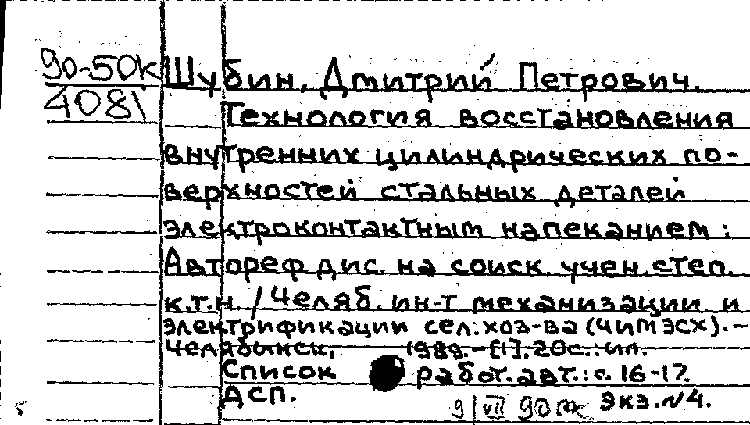 90-50к
4081
Шубин, Дмитрий Петрович.
Технология восстановления
внутренних цилиндрических по-
верхностей стальных деталей
электроконтактным напеканием :
Автореф дис. на соиск учен. степ.
к.т.н. / Челяб. ин-т механизации и
электрификации сел. хоз-ва (ЧИМЭСХ). -
Челябинск, 1989. - [1], 20с.: ил.
Список работ. авт.: с. 16-17.
ДСП.
9 VII 90 Экз. N4.